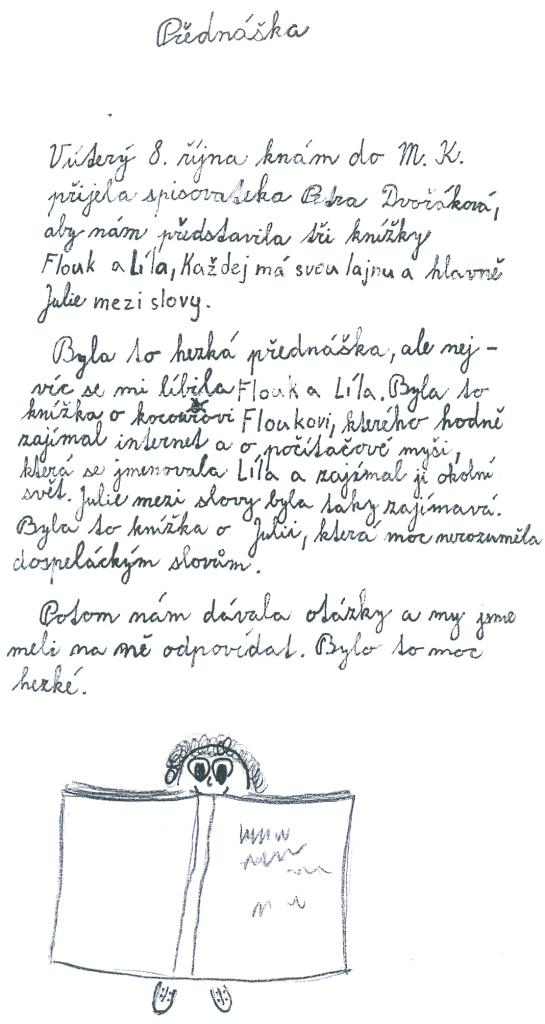 Přednáška
Vúterý 8. října knám do M. K.
přijela spisovateka Petra Dvořáková,
aby nám představila tři knížky
Flouk a Líla, Každej má svou lajnu a hlavně
Julie mezi slovy.
Byla to hezká přednáška, ale nej-
víc se mi líbila Flouk a Líla. Byla to
knížka o kocourovi Floukovi, kterého hodně
zajímal internet a o počítačové myši,
která se jmenovala Líla a zajímal ji okolní
svět. Julie mezi slovy byla taky zajímavá.
Byla to knížka o Julii, která moc nerozuměla
dospeláckým slovům.
Potom nám dávala otázky a my jsme
meli na ně odpovídat. Bylo to moc
hezké.